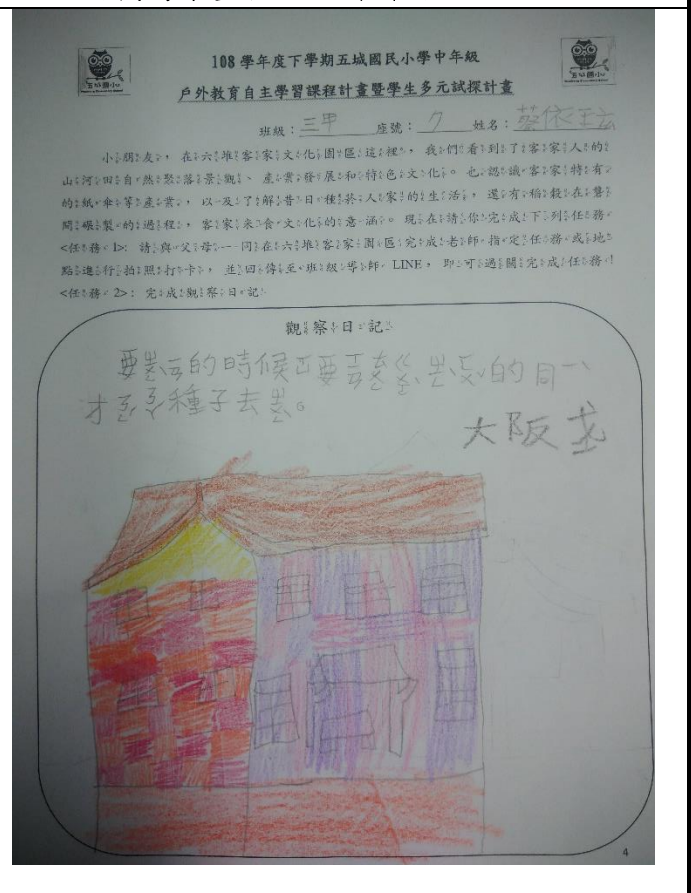 108 學年度下學期五城國民小學中年級
戶外教育自主學習課程計畫暨學生多元試探計畫
班級：三甲 座號：7 姓名：蔡依玹
小朋友，在六堆客家文化園區這裡，我們看到了客家人的
山河田自然聚落景觀、產業發展和特色文化。也認識客家特有
的紙傘等產業，以及了解昔日種菸人家的生活，還有稻穀在礱
間碾製的過程，客家米食文化的意涵。現在請你完成下列任務
<任務 1>: 請與父母一同在六堆客家園區完成老師指定任務或地
點進行拍照打卡，並回傳至班級導師 LINE，即可過關完成任務！
<任務 2>: 完成觀察日記
觀察日記
的時候 要 的
種子去 。
大阪
4